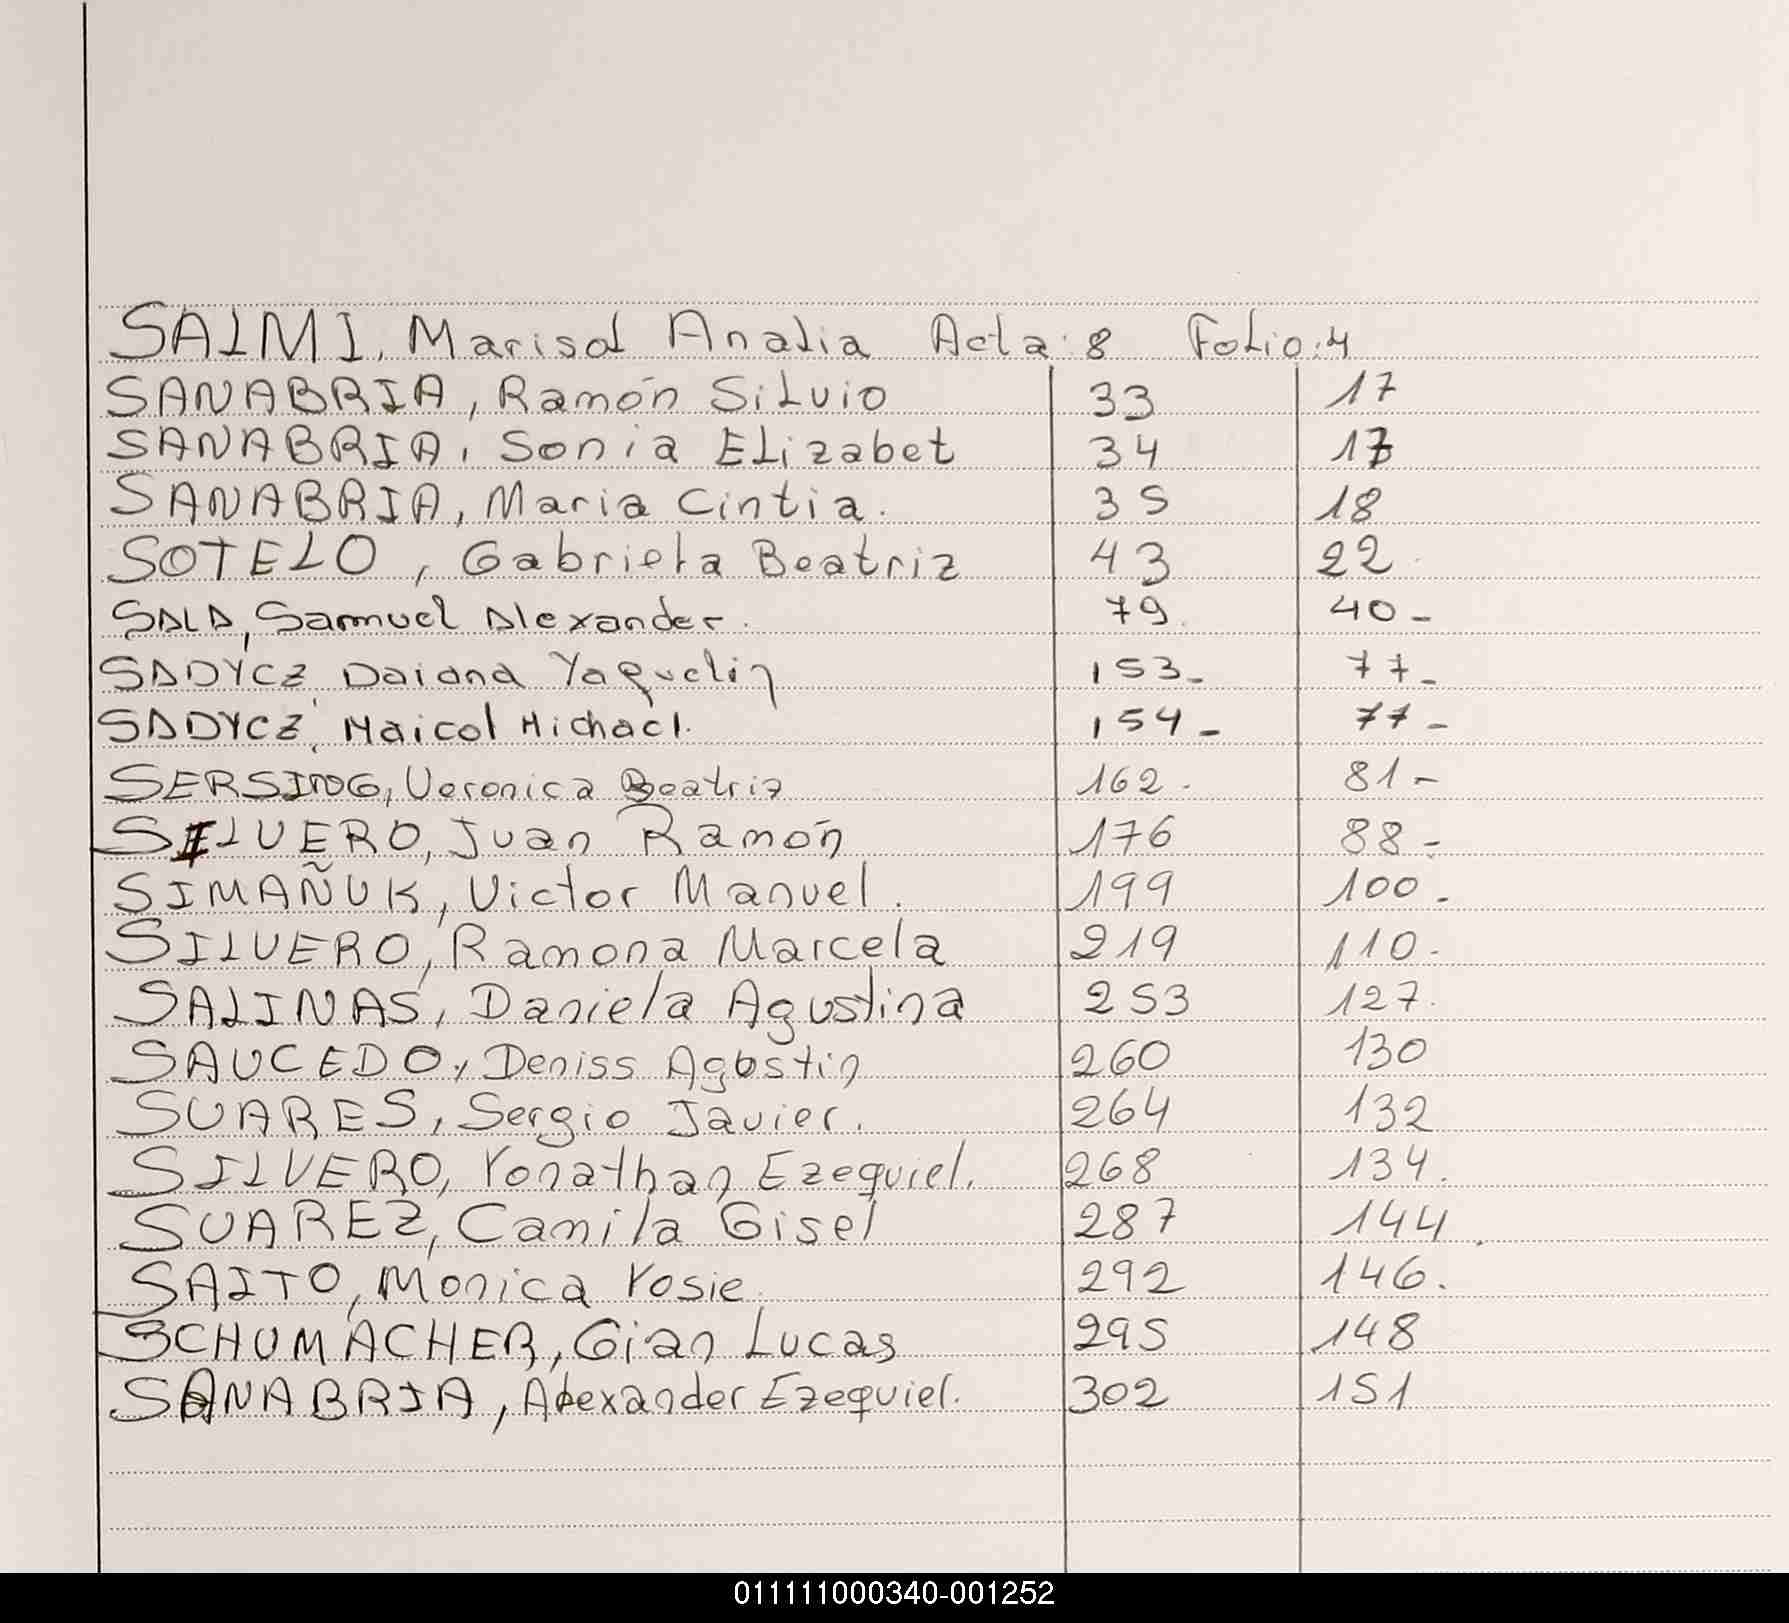 SALMI, Marisol Analia Acta: 8 Folio: 4
SANABRIA, Ramón Silvio 33 17
SANABRIA, Sonia Elizabet 34 17
SANABRIA, Maria Cintia. 35 18
SOTELO, Gabriela Beatriz 43 22
SALA, Samuel Alexander. 79. 40-
SADYCZ, Daiana Yaquelin 153- 77-
SADYCZ, Maicol Michael. 154- 77-
SERSING, Veronica Beatriz 162. 81-
SILVERO, Juan Ramón 176 88-
SIMAÑUK, Victor Manuel. 199 100.
SILVERO, Ramona Marcela 219 110.
SALINAS, Daniela Agustina 253 127.
SAUCEDO, Deniss Agostin 260 130
SUARES, Sergio Javier. 264 132
SILVERO, Yonathan Ezequiel. 268 134.
SUAREZ, Camila Gisel 287 144.
SAITO, Monica Yosie. 292 146.
SCHUMACHER, Gian Lucas 295 148
SANABRIA, Alexander Ezequiel. 302 151
011111000340-001252